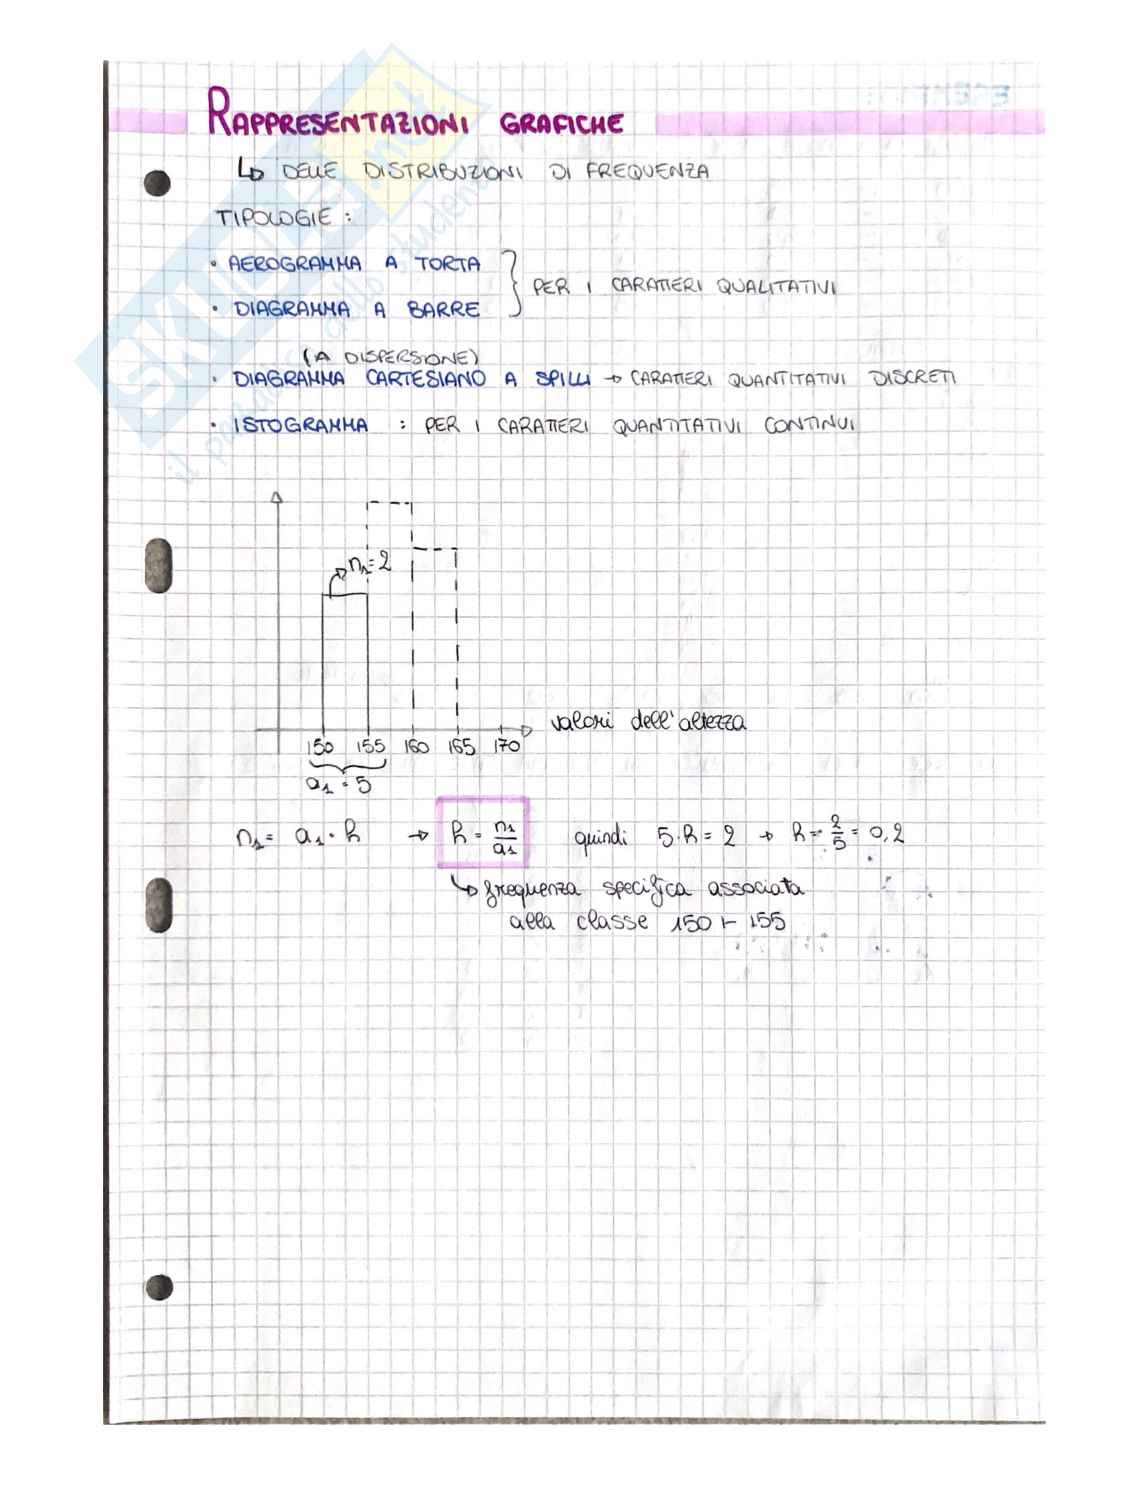 RAPPRESENTAZIONI GRAFICHE
↳ DELLE DISTRIBUZIONI DI FREQUENZA
TIPOLOGIE:
• AEROGRAMMA A TORTA
• DIAGRAMMA A BARRE
} PER I CARATTERI QUALITATIVI
(A DISPERSIONE)
• DIAGRAMMA CARTESIANO A SPILLI → CARATTERI QUANTITATIVI DISCRETI
• ISTOGRAMMA : PER I CARATTERI QUANTITATIVI CONTINUI
n₁=2
valori dell'altezza
150 155 160 165 170
a₁=5
n₁ = a₁ · h → h = n₁/a₁ quindi 5·h = 2 → h = 2/5 = 0,2
↳ frequenza specifica associata
alla classe 150 ⊢ 155
SKUOLA.net